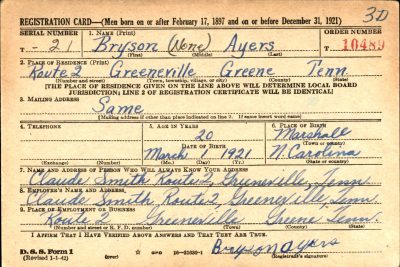 REGISTRATION CARD—(Men born on or after February 17, 1897 and on or before December 31, 1921) 3D
SERIAL NUMBER 1. NAME (Print) ORDER NUMBER
T- 21 Bryson (None) Ayers T 10489
(First) (Middle) (Last)
2. PLACE OF RESIDENCE (Print)
Route 2 Greeneville Greene Tenn
(Number and street) (Town, township, village, or city) (County) (State)
[THE PLACE OF RESIDENCE GIVEN ON THE LINE ABOVE WILL DETERMINE LOCAL BOARD
JURISDICTION; LINE 2 OF REGISTRATION CERTIFICATE WILL BE IDENTICAL]
3. MAILING ADDRESS
Same
[Mailing address if other than place indicated on line 2. If same insert word same]
4. TELEPHONE 5. AGE IN YEARS 6. PLACE OF BIRTH
20 Marshall
DATE OF BIRTH (Town or county)
March 1 1921 N. Carolina
(Exchange) (Number) (Mo.) (Day) (Yr.) (State or country)
7. NAME AND ADDRESS OF PERSON WHO WILL ALWAYS KNOW YOUR ADDRESS
Claude Smith Route 2, Greeneville, Tenn.
8. EMPLOYER'S NAME AND ADDRESS
Claude Smith, Route 2, Greeneville, Tenn.
9. PLACE OF EMPLOYMENT OR BUSINESS
Route 2 Greeneville Greene Tenn.
(Number and street or R. F. D. number) (Town) (County) (State)
I AFFIRM THAT I HAVE VERIFIED ABOVE ANSWERS AND THAT THEY ARE TRUE.
D. S. S. Form 1 GPO 16—21630-1 Bryson Ayers
(Revised 1-1-42) (Registrant's signature)